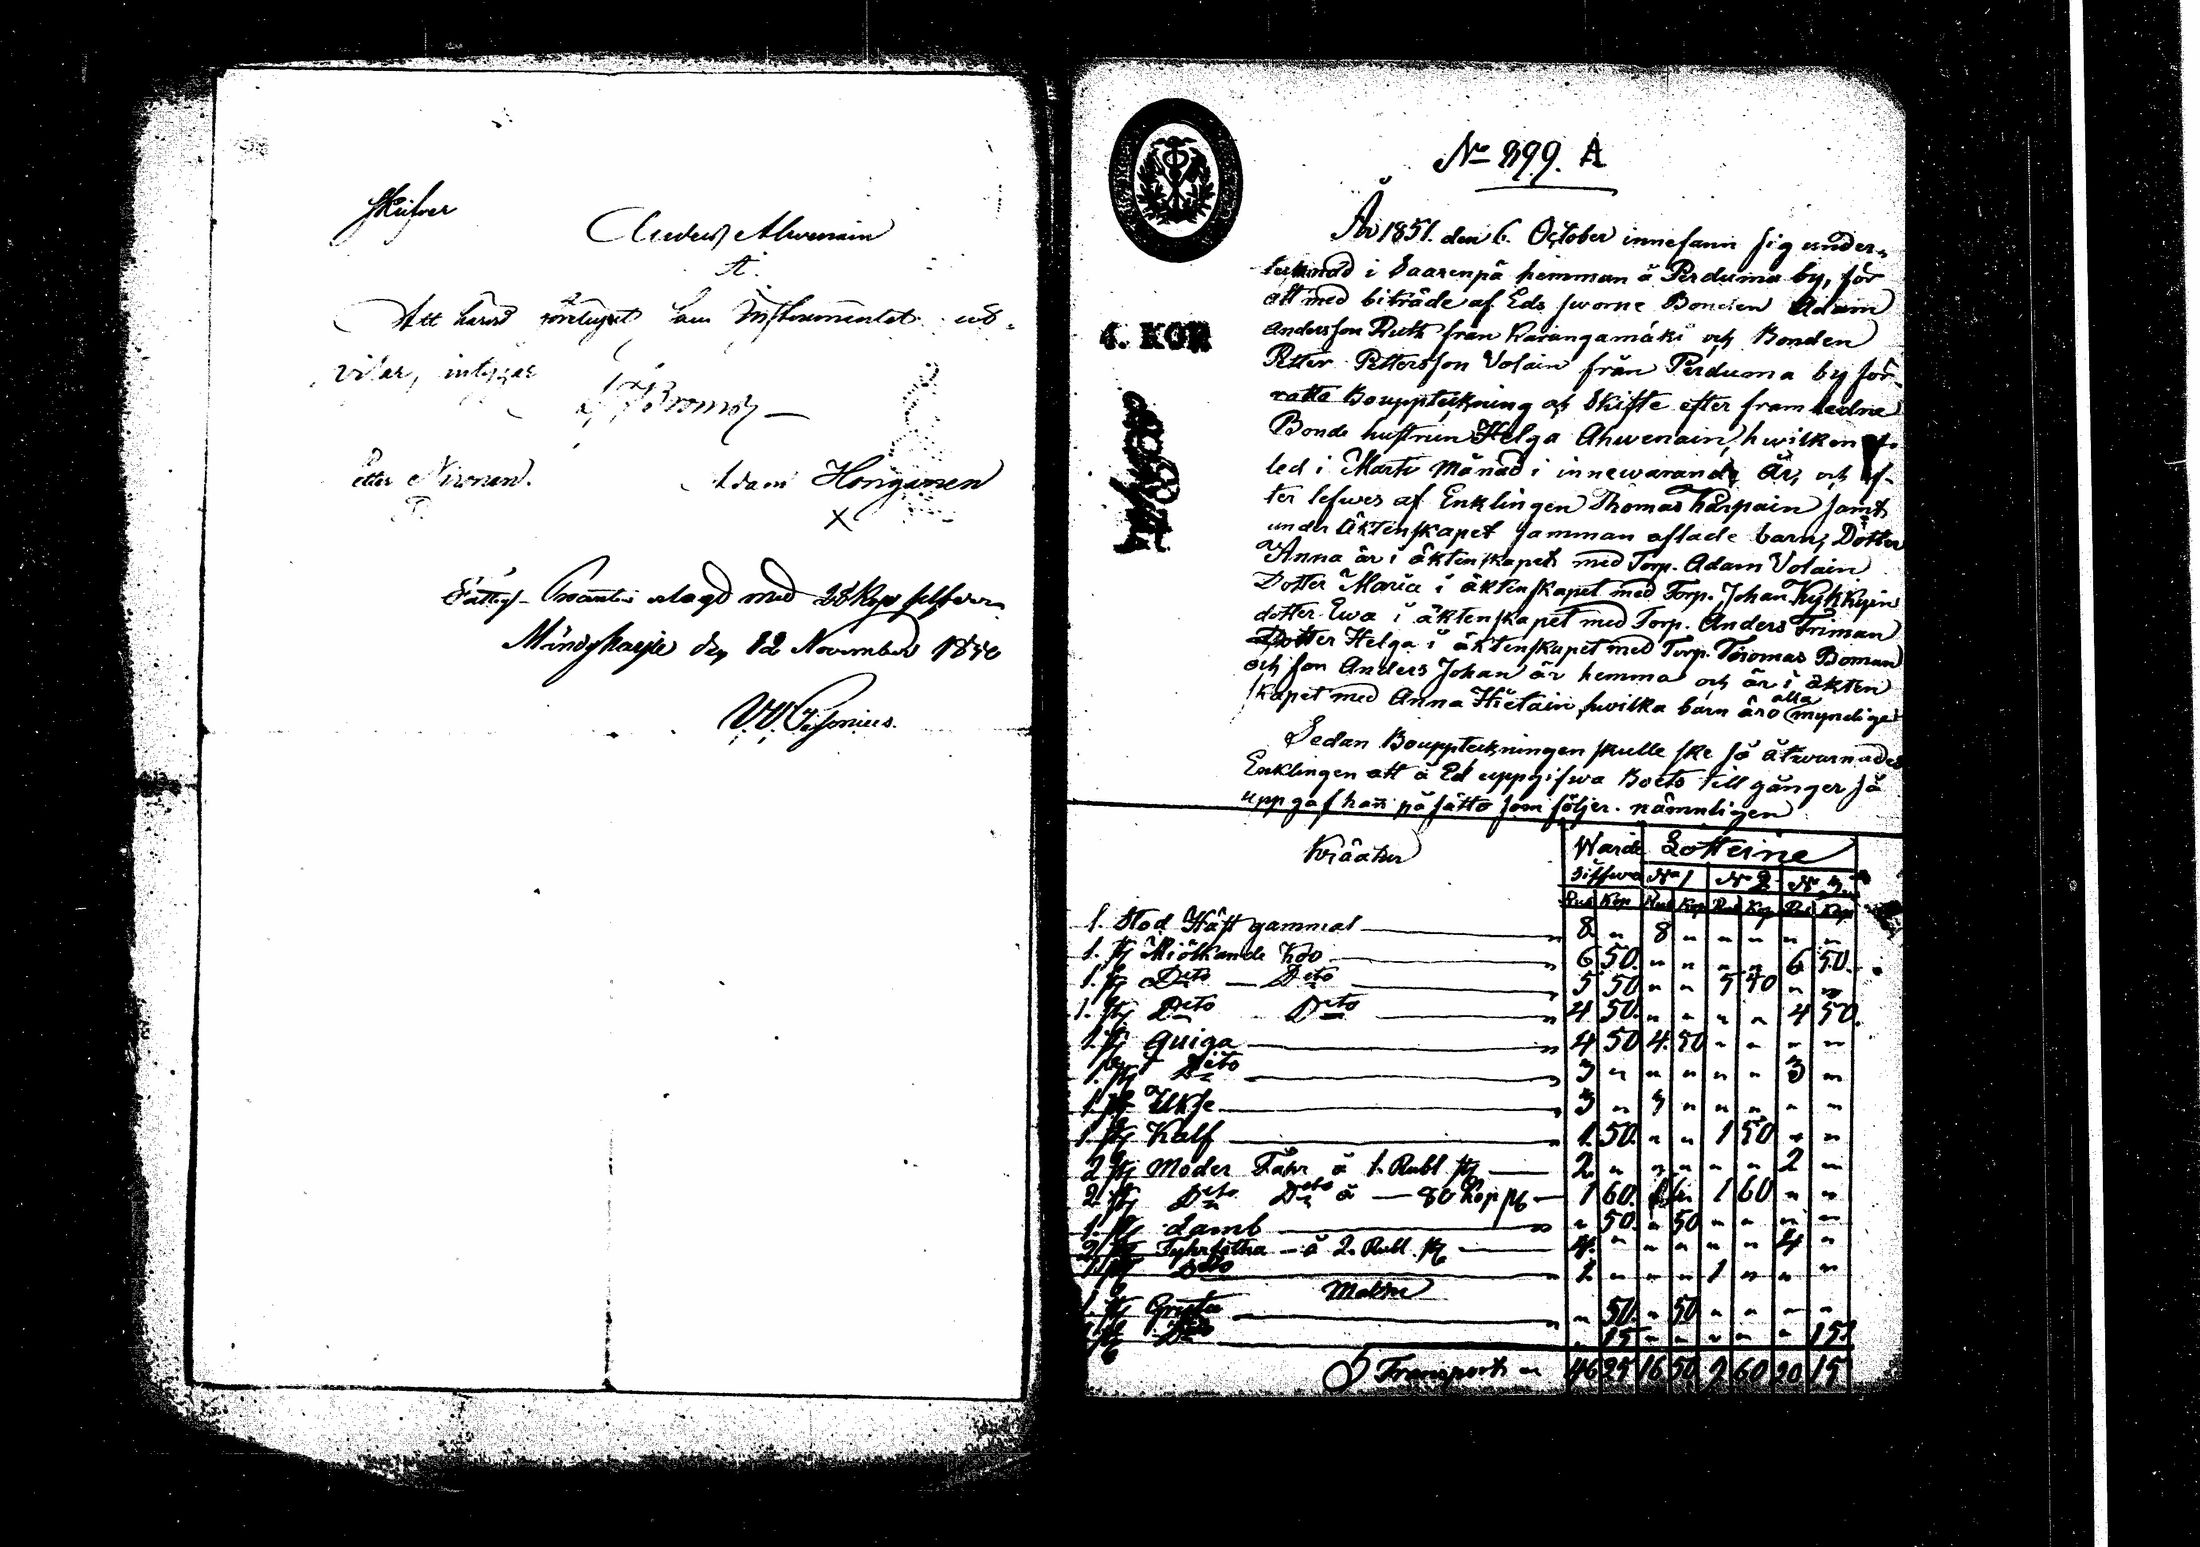 Anders Ahwenain
Att härvid företeyt har Instrumentet ut-
visar, intygar
Petter Nironen. Adam Honganen
X
Fattig-Procenten erlagd med 28 Kop silfver
Mändyharju den 12 November 1850
No 899. A
År 1851. den 6. October innefann sig under-
tecknad i Saarenpä hemman å Perduma by, för
att med biträde af Eds sworne Bonden Adam
Andersson Ruth från Karangamäki och Bonden
Petter Pettersson Volain från Perduma by för-
rätta Bouppteckning och Skifte efter framledne
Bonde hustrun Helga Ahwenain, hwilken af-
led i Marti månad i innewarande År, och ef-
ter lefwes af Enklingen Thomas Kärpain samt
under äktenskapet samman aflade barn; Dotter
Anna är i äktenskapet med Torp. Adam Volain
Dotter Maria i äktenskapet med Torp. Johan Kyhkyin
dotter Ewa i äktenskapet med Torp. Anders Friman
Dotter Helga i äktenskapet med Torp. Thomas Boman
och son Anders Johan är hemma och är i äkten
skapet med Anna Hietain, hwilka barn äro alla myndige
Sedan Bouppteckningen skulle ske så åtwarnades
Enklingen att å Ed uppgifwa Boets till gånger så
uppgaf han på sätt som följer. nämnligen
Kräaker Wärde Lotterne
Silfwer No 1 No 2 No 3
Rub Kop Rub Kop Rub Kop Rub Kop
1. Stod Häst gammal " 8 " 8 " " " " "
1. st Miölkande Koo " 6 50. " " " " 6 50.
1. st Dito Dito " 5 50 " " 5 50 " "
1. st Dito Dito " 4 50. " " " " 4 50.
1. st Quiga " 4 50 4. 50 " " " "
1. st Dito " 3 " " " " " 3 "
1 st Ukse " 3 " 3 " " " " "
1 st Kalf " 1. 50. " " 1 50 " "
2 st Moder Fåhr á 1. Rubl st 2. " " " " " 2 "
2 st Dito Dito á 80 Kop st 1 60. " " 1 60 " "
1. st Lamb " " 50. " 50 " " " "
2 st á 2. Rubl. st 4. " " " " " 4 "
1. st Dito " 1. " " " 1 " " "
1. st Gryta " 50. " 50 " " " "
1 st Dito " 15 " " " " " 15.
Transport " 46 25 16 50 9 60 20 15